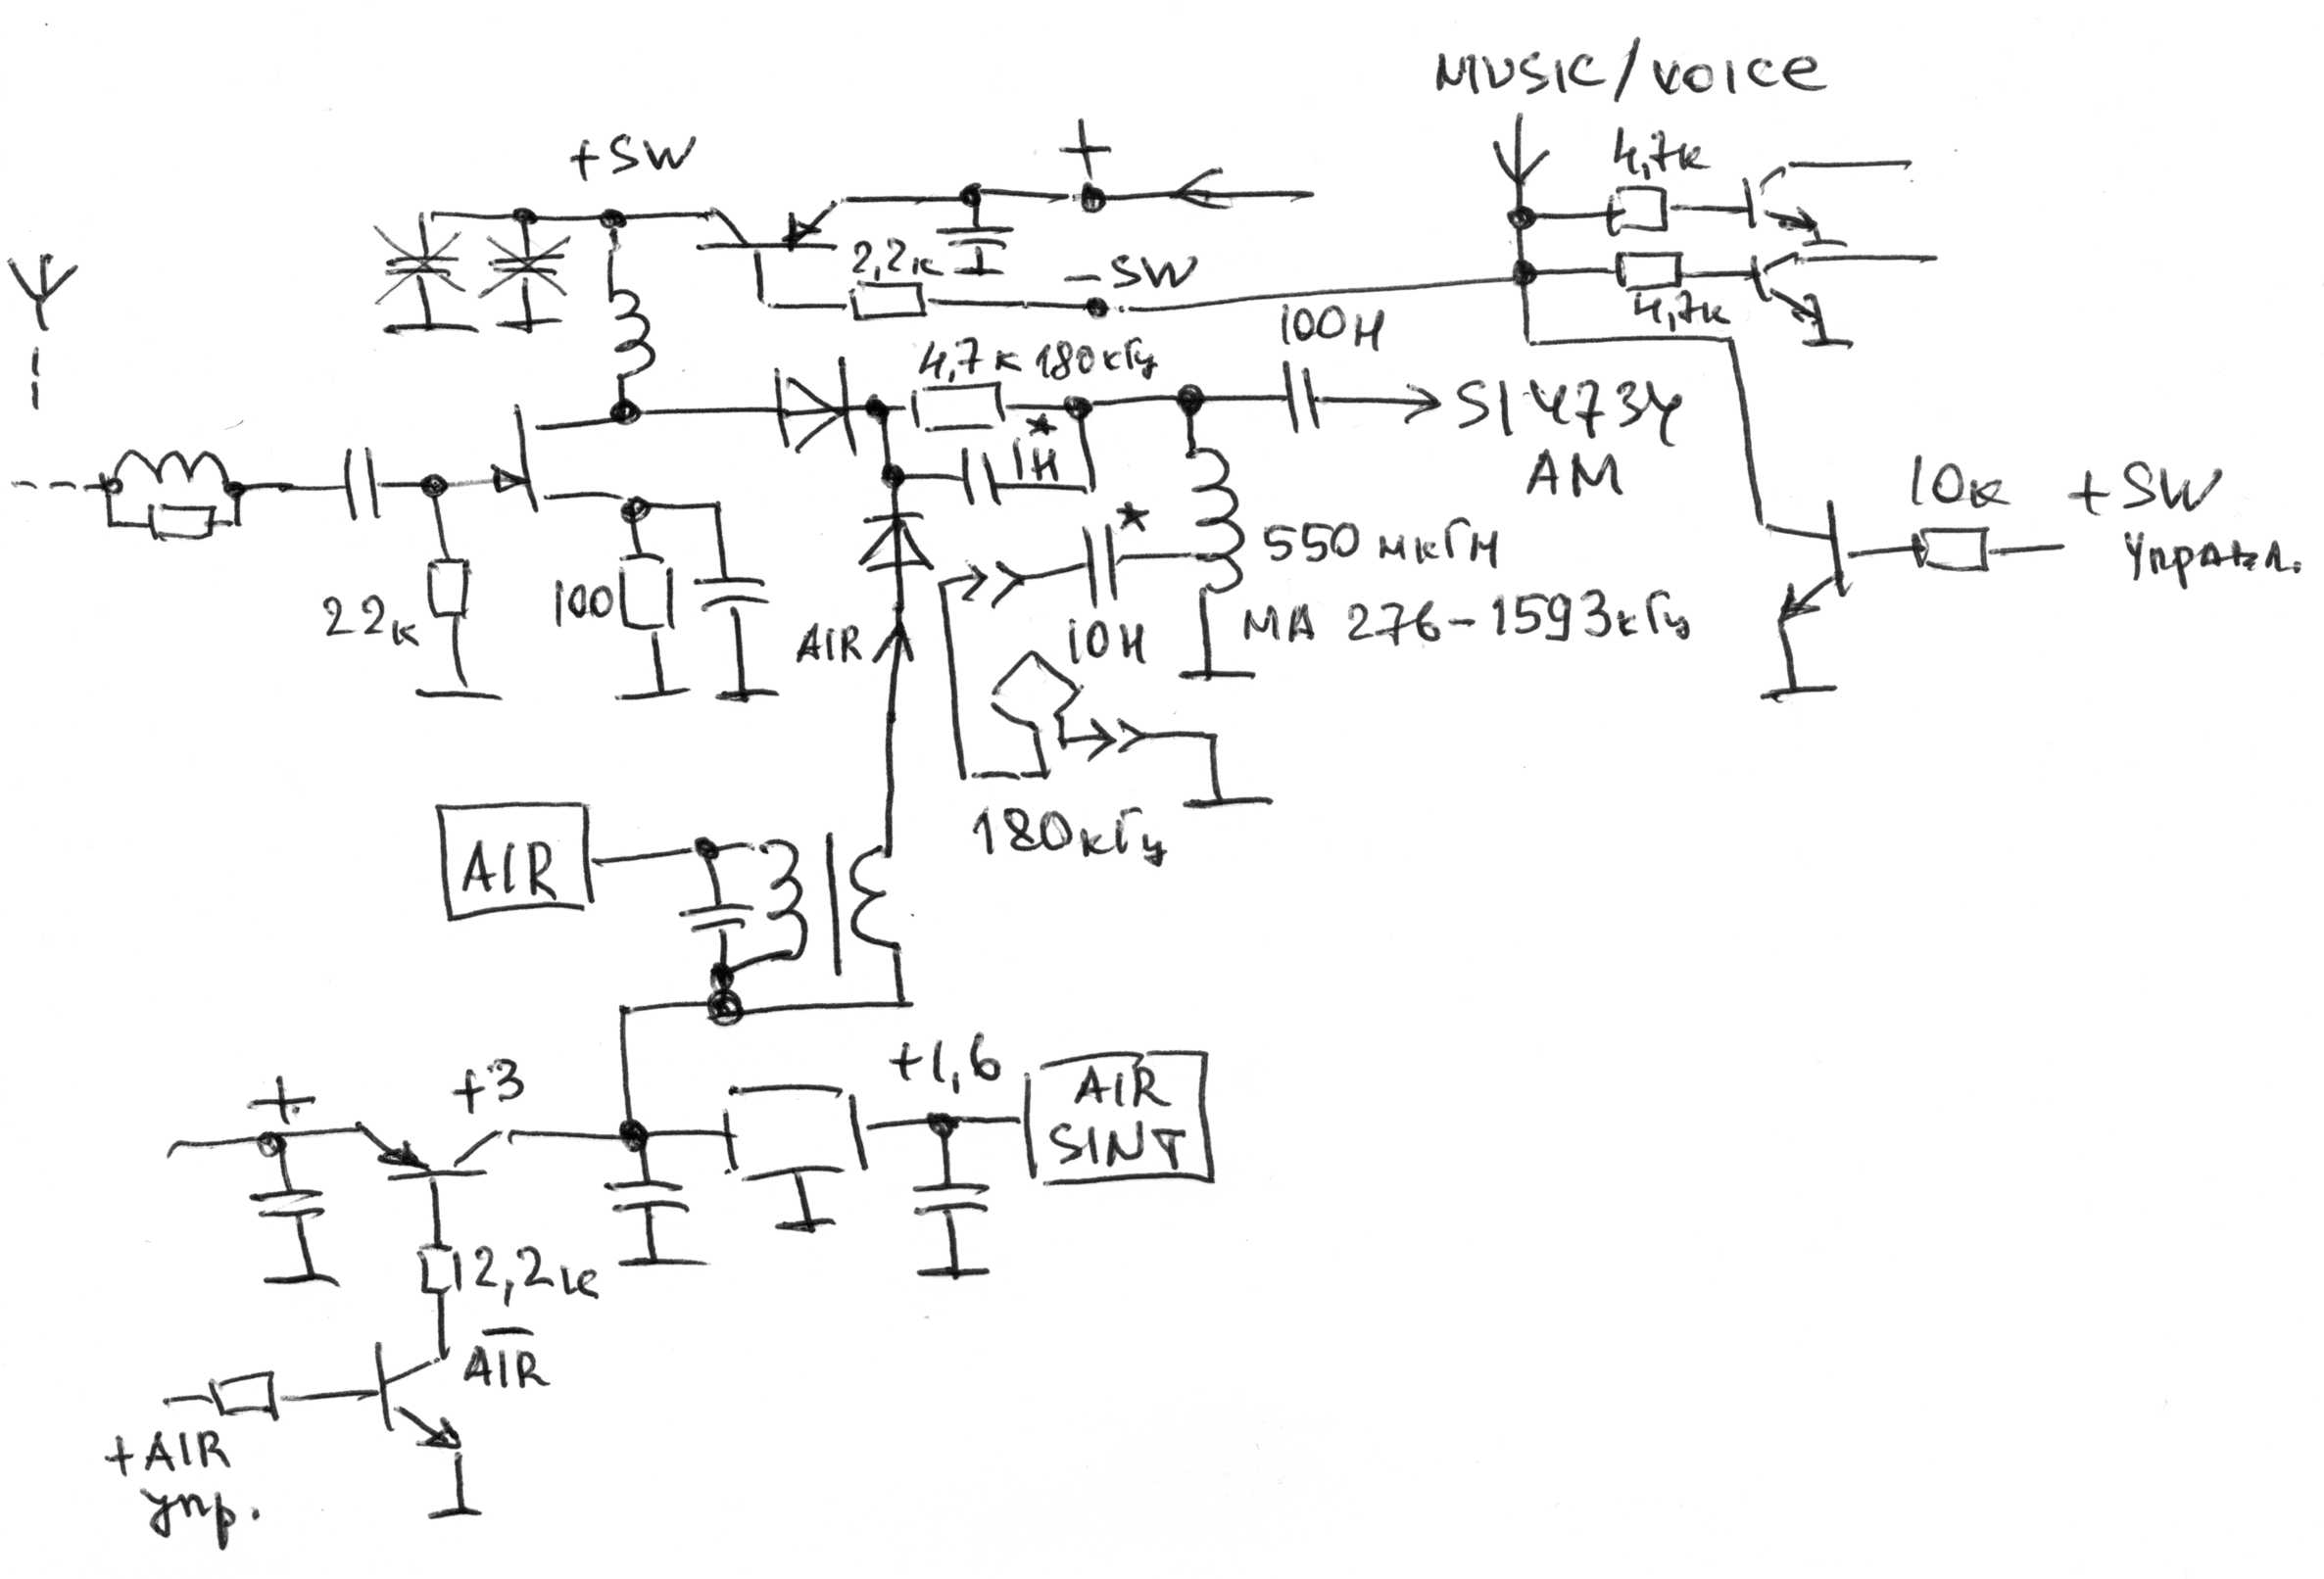 MUSIC/VOICE
+SW
+
4,7к
2,2к
-SW
4,7к
100Н
4,7к 180кГц
SI4734
AM
*
1Н
10к +SW
Управл.
*
550 мкГн
22к
100
AIR
10Н
МА 276-1593кГц
180кГц
AIR
+
+3
+1,6
AIR
SINT
2,2к
AIR
+AIR
упр.